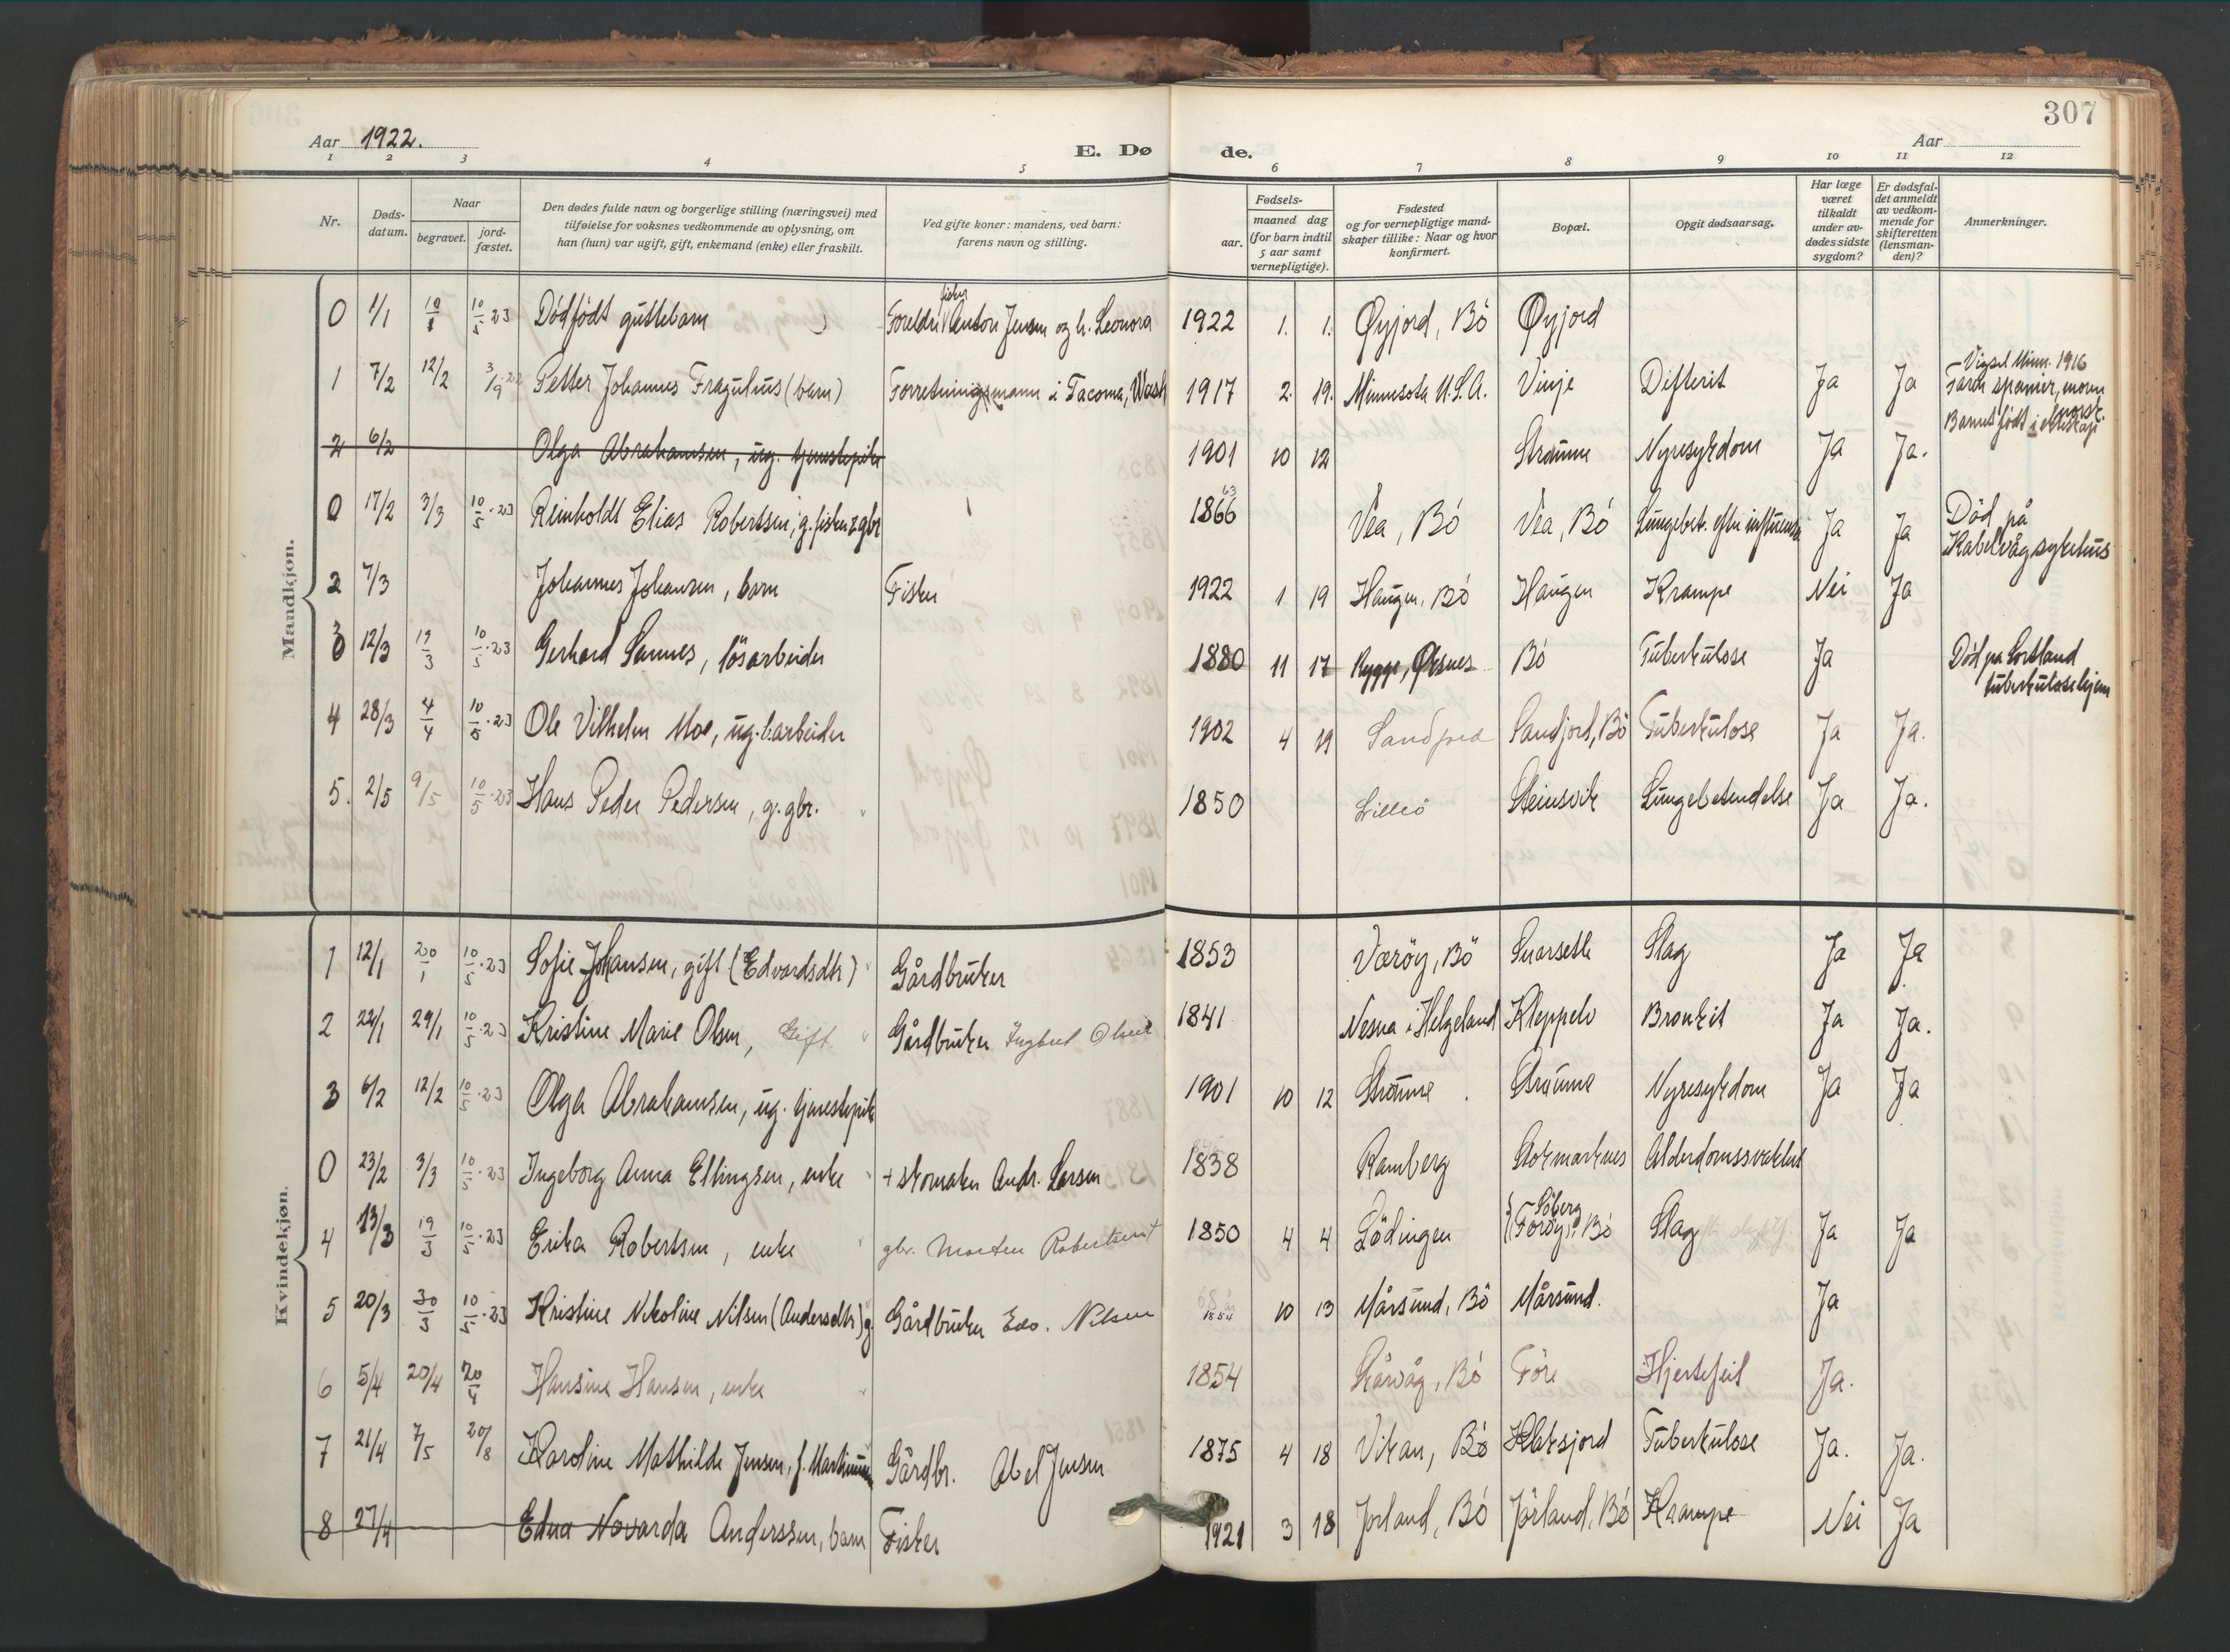 307
Aar 1922.
E. Dø de.
Aar
1 2 3 4 5 6 7 8 9 10 11 12
Nr.
Døds-
datum.
Naar
begravet.
jord-
fæstet.
Den dødes fulde navn og borgerlige stilling (næringsvei) med
tilføielse for voksnes vedkommende av oplysning, om
han (hun) var ugift, gift, enkemand (enke) eller fraskilt.
Ved gifte koner: mandens, ved barn:
farens navn og stilling.
Fødsels-
aar.
maaned dag
(for barn indtil
5 aar samt
vernepligtige).
Fødested
og for vernepligtige mand-
skaper tillike: Naar og hvor
konfirmert.
Bopæl.
Opgit dødsaarsag.
Har læge
været
tilkaldt
under av-
dødes sidste
sygdom?
Er dødsfal-
det anmeldt
av vedkom-
mende for
skifteretten
(lensman-
den)?
Anmerkninger.
Mandkjøn.
0 1/1 10/1 10/5·23 Dødfødt guttebarn Foreldre fisker Anton Jensen og h. Leonora 1922 1. 1. Øyjord, Bö Øyjord
1 7/2 12/2 3/9·22 Petter Johannes Fragulius (barn) Forretningsmann i Tacoma, Wash 1917 2. 19. Minnesota U.S.A. Vinje Difterit Ja Ja Vigsel Minn. 1916
Faren spanier, moren
norsk.
Barnet født i ekteskap
2 6/2 Olga Abrahamsen, ug. tjenestepike 1901 10 12 Straume Nyresykdom Ja Ja.
0 17/2 3/3 10/5·23 Reinholdt Elias Robertsen, g. fisker & gbr 1866 63 Vea, Bö Vea, Bö Lungebet. efter influensa Ja Ja Död på
Kabelvåg sykehus
2 7/3 Johannes Johansen, barn Fisker 1922 1 19 Haugen, Bö Haugen Krampe Nei Ja
3 12/3 19/3 10/5·23 Gerhard Sannes, lösarbeider 1880 11 17 Rygge, Øksnes Bö Tuberkulose Ja Död på Sortland
tuberkulosehjem
4 28/3 4/4 10/5·23 Ole Vilhelm Moe, ug. arbeider 1902 4 19 Sandjord Sandjord, Bö Tuberkulose Ja Ja.
5. 2/5 9/5 10/5·23 Hans Peder Pedersen, g. gbr. 1850 Lilleö Steinsvik Lungebetendelse Ja Ja.
Kvindekjøn.
1 12/1 20/1 10/5·23 Sofie Johansen, gift (Edvardsdtr) Gårdbruker 1853 Væröy, Bö Svarselt Slag Ja Ja
2 22/1 29/1 10/5·23 Kristine Marie Olsen, Gift Gårdbruker Ingbret Olsen 1841 Nesna i Helgeland Kleppelv Bronkit Ja Ja.
3 6/2 12/2 10/5·23 Olga Abrahamsen, ug. tjenestepike 1901 10 12 Straume Straume Nyresykdom Ja Ja
0 23/2 3/3 10/5·23 Ingeborg Anna Ellingsen, enke + skomaker Andr. Larsen 1838 Ramberg Stokmarknes Alderdomssvakhet
4 13/3 19/3 10/5·23 Erika Robertsen, enke gbr. Morten Robertsen † 1850 4 4 Lödingen Söberg
Foröy, Bö Slag Ja Ja
5 20/3 30/3 10/5·23 Kristine Nikoline Nilsen (Andersdtr) g Gårdbruker Edv. Nilsen 1854 10 13 Mårsund, Bö Mårsund. Ja
6 5/4 20/4 20/4 Hansine Hansen, enke 1854 Skårvåg, Bö Före Hjertefeil Ja.
7 21/4 7/5 20/8 Karoline Mathilde Jensen, f. Martinussen Gårdbr. Abel Jensen 1875 4 18 Vikan, Bö Klaksjord Tuberkulose Ja. Ja.
8 27/4 Edna Novarda Anderssen, barn Fisker 1921 3 18 Jorland, Bö Jörland, Bö Krampe Nei Ja